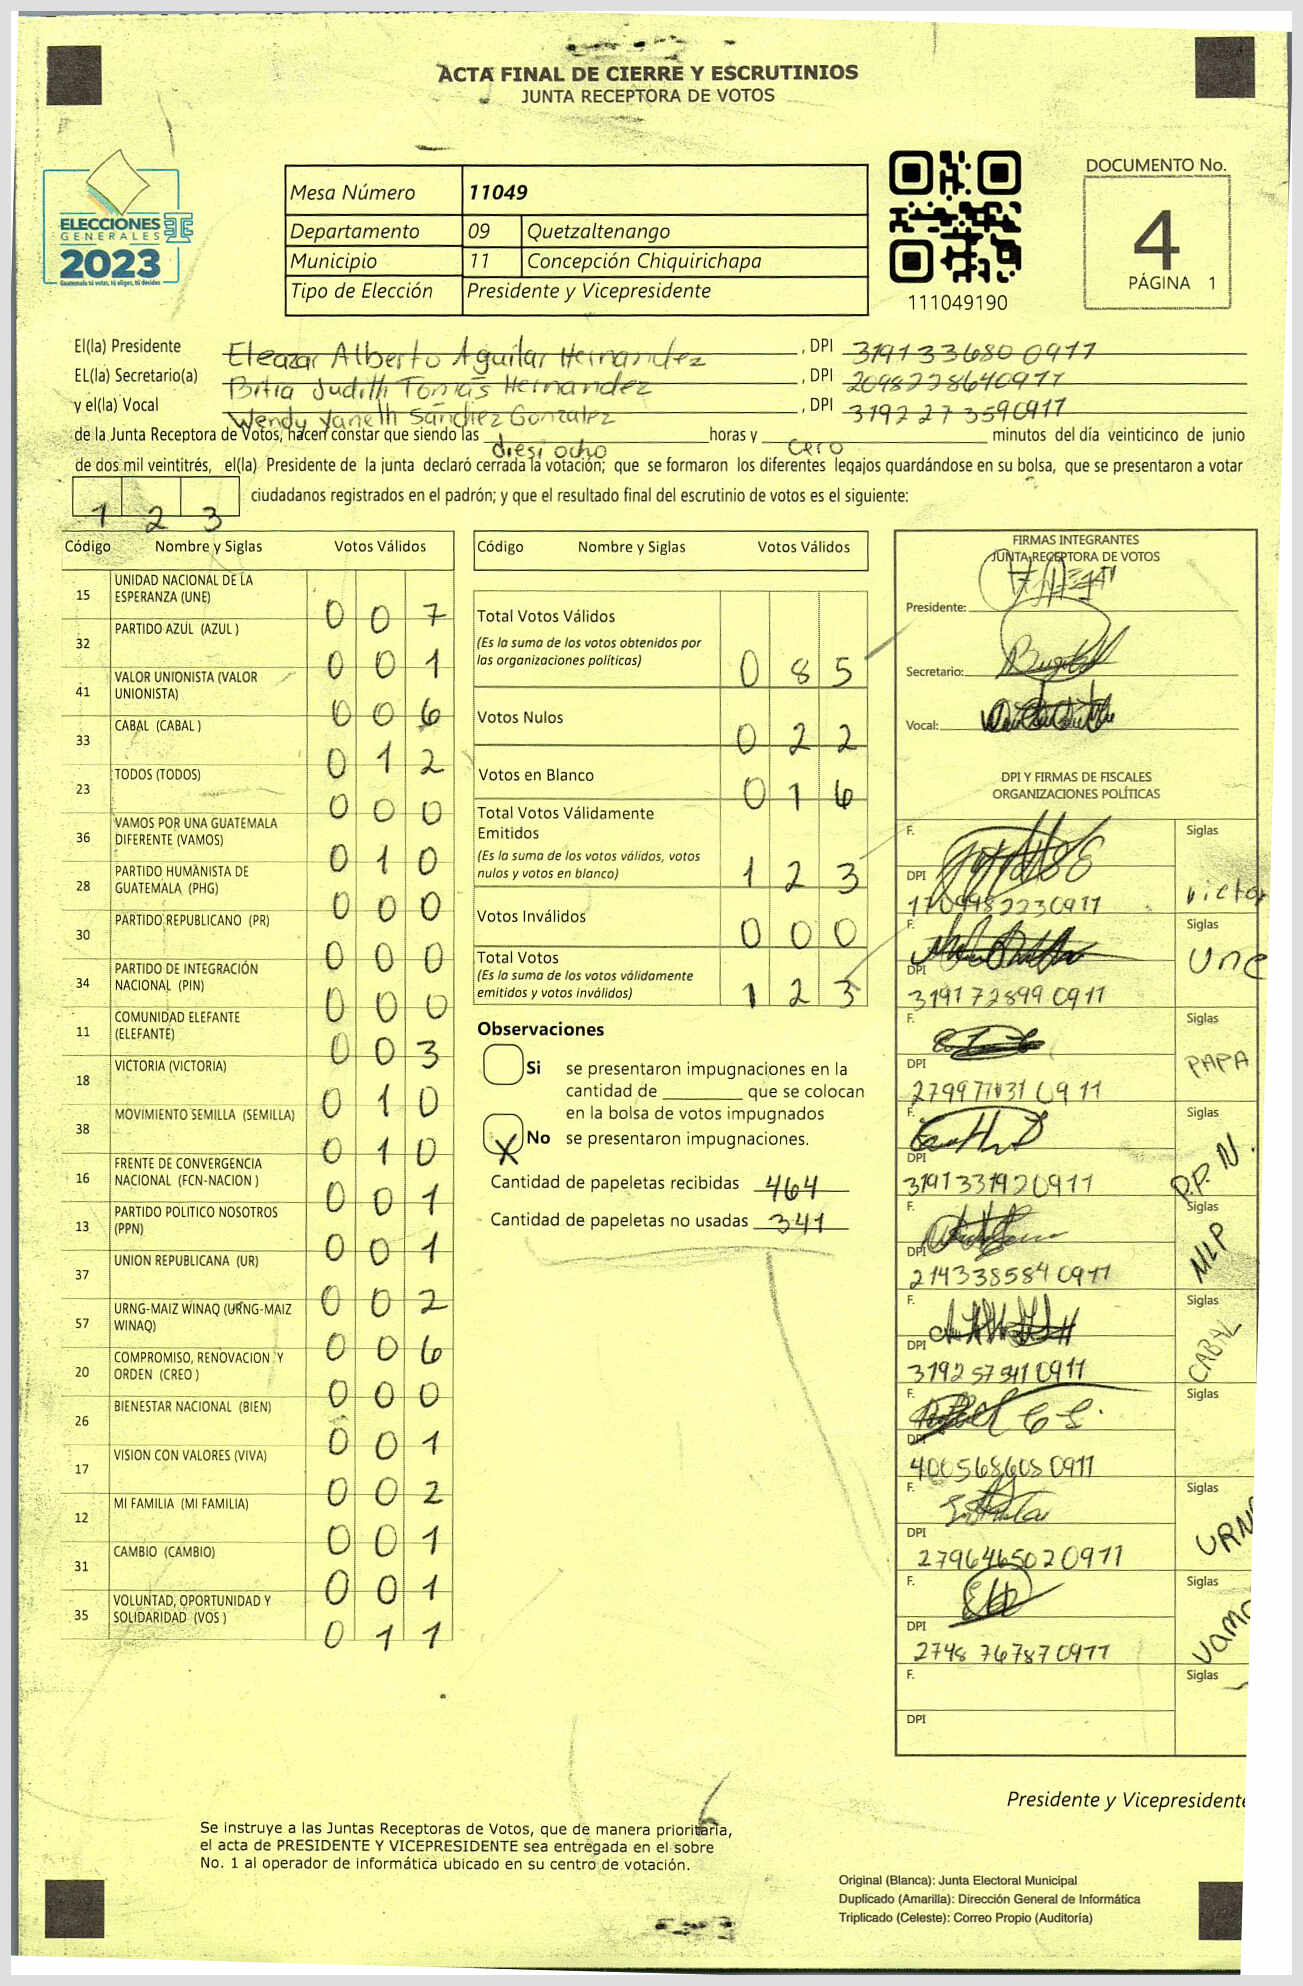 ACTA FINAL DE CIERRE Y ESCRUTINIOS
JUNTA RECEPTORA DE VOTOS
ELECCIONES
GENERALES
2023
Guatemala tú votas, tú eliges, tú decides
Mesa Número 11049
Departamento 09 Quetzaltenango
Municipio 11 Concepción Chiquirichapa
Tipo de Elección Presidente y Vicepresidente
111049190
DOCUMENTO No.
4
PÁGINA 1
El(la) Presidente Eleazar Alberto Aguilar Hernandez, DPI 3191336800911
EL(la) Secretario(a) Judith Tomás Hernandez, DPI 2098228640911
y el(la) Vocal Wendy Yaneth Sánchez Gonzalez, DPI 3192273590911
de la Junta Receptora de Votos, hacen constar que siendo las diesi ocho horas y cero minutos del día veinticinco de junio
de dos mil veintitrés, el(la) Presidente de la junta declaró cerrada la votación; que se formaron los diferentes legajos guardándose en su bolsa, que se presentaron a votar
1 2 3 ciudadanos registrados en el padrón; y que el resultado final del escrutinio de votos es el siguiente:
Código Nombre y Siglas Votos Válidos
15 UNIDAD NACIONAL DE LA ESPERANZA (UNE) 0 0 7
32 PARTIDO AZUL (AZUL ) 0 0 1
41 VALOR UNIONISTA (VALOR UNIONISTA) 0 0 6
33 CABAL (CABAL ) 0 1 2
23 TODOS (TODOS) 0 0 0
36 VAMOS POR UNA GUATEMALA DIFERENTE (VAMOS) 0 1 0
28 PARTIDO HUMANISTA DE GUATEMALA (PHG) 0 0 0
30 PARTIDO REPUBLICANO (PR) 0 0 0
34 PARTIDO DE INTEGRACIÓN NACIONAL (PIN) 0 0 0
11 COMUNIDAD ELEFANTE (ELEFANTE) 0 0 3
18 VICTORIA (VICTORIA) 0 1 0
38 MOVIMIENTO SEMILLA (SEMILLA) 0 1 0
16 FRENTE DE CONVERGENCIA NACIONAL (FCN-NACION ) 0 0 1
13 PARTIDO POLITICO NOSOTROS (PPN) 0 0 1
37 UNION REPUBLICANA (UR) 0 0 2
57 URNG-MAIZ WINAQ (URNG-MAIZ WINAQ) 0 0 6
20 COMPROMISO, RENOVACION Y ORDEN (CREO ) 0 0 0
26 BIENESTAR NACIONAL (BIEN) 0 0 1
17 VISION CON VALORES (VIVA) 0 0 2
12 MI FAMILIA (MI FAMILIA) 0 0 1
31 CAMBIO (CAMBIO) 0 0 1
35 VOLUNTAD, OPORTUNIDAD Y SOLIDARIDAD (VOS ) 0 1 1
Código Nombre y Siglas Votos Válidos
Total Votos Válidos
(Es la suma de los votos obtenidos por
las organizaciones políticas) 0 8 5
Votos Nulos 0 2 2
Votos en Blanco 0 1 6
Total Votos Válidamente
Emitidos
(Es la suma de los votos válidos, votos
nulos y votos en blanco) 1 2 3
Votos Inválidos 0 0 0
Total Votos
(Es la suma de los votos válidamente
emitidos y votos inválidos) 1 2 3
Observaciones
Si se presentaron impugnaciones en la
cantidad de ________ que se colocan
en la bolsa de votos impugnados
X No se presentaron impugnaciones.
Cantidad de papeletas recibidas 464
Cantidad de papeletas no usadas 341
FIRMAS INTEGRANTES
JUNTA RECEPTORA DE VOTOS
Presidente:
Secretario:
Vocal:
DPI Y FIRMAS DE FISCALES
ORGANIZACIONES POLÍTICAS
F. Siglas
DPI 1709982230911 Victor
F. Siglas
DPI 3191728990911 Une
F. Siglas
DPI PAPA
F. Siglas
DPI 3191331920911 P.P.N.
F. Siglas
DPI 2143385840911 MLP
F. Siglas
DPI 3192575410911 CABAL
F. Siglas
DPI 4005686080911
F. Siglas
DPI 2796465020911 URN
F. Siglas
DPI 2748767870911 Vamo
F. Siglas
DPI
Presidente y Vicepresidente
Se instruye a las Juntas Receptoras de Votos, que de manera prioritaria,
el acta de PRESIDENTE Y VICEPRESIDENTE sea entregada en el sobre
No. 1 al operador de informática ubicado en su centro de votación.
Original (Blanca): Junta Electoral Municipal
Duplicado (Amarilla): Dirección General de Informática
Triplicado (Celeste): Correo Propio (Auditoría)